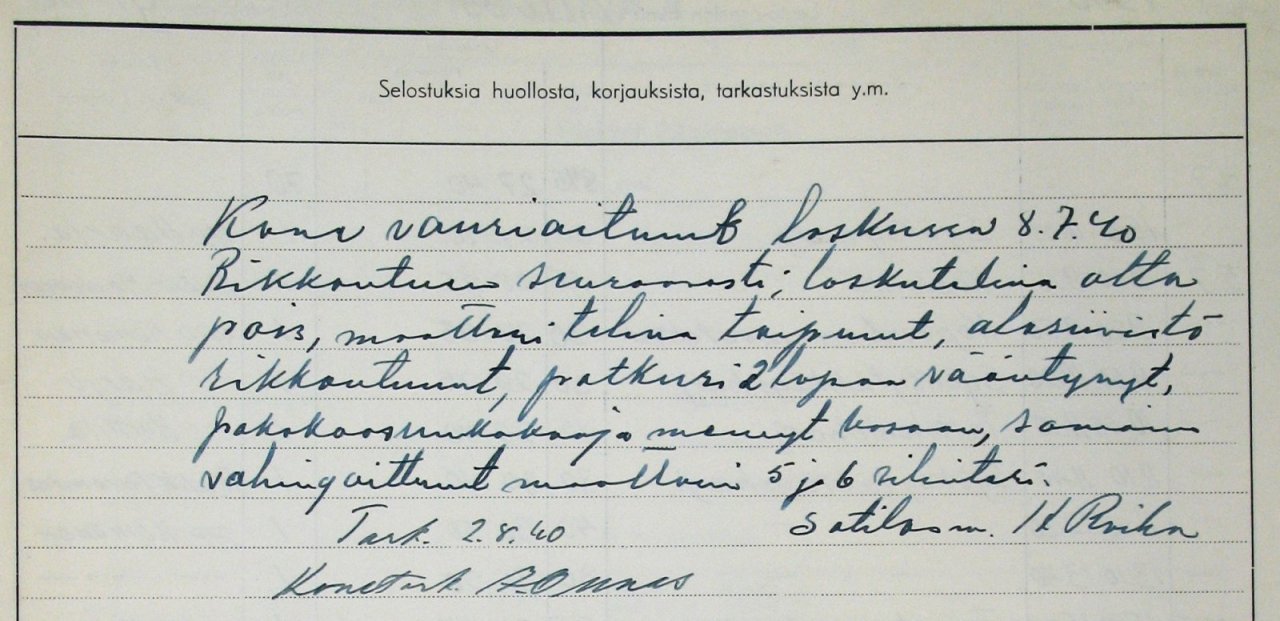 Selostuksia huollosta, korjauksista, tarkastuksista y.m.
Kone vaurioitunut laskussa 8.7.40
Rikkoutunu seuraavasti; laskuteline alta
pois, moottori teline taipunut, alasiivistö
rikkoutunut, potkuri 2 lapaa vääntynyt,
pakokaasunkokooja mennyt kasaan, samoin
vahingoittunut moottorin 5 ja 6 silinteri.
Tark. 2.8.40 sotilasm.
Konetark.